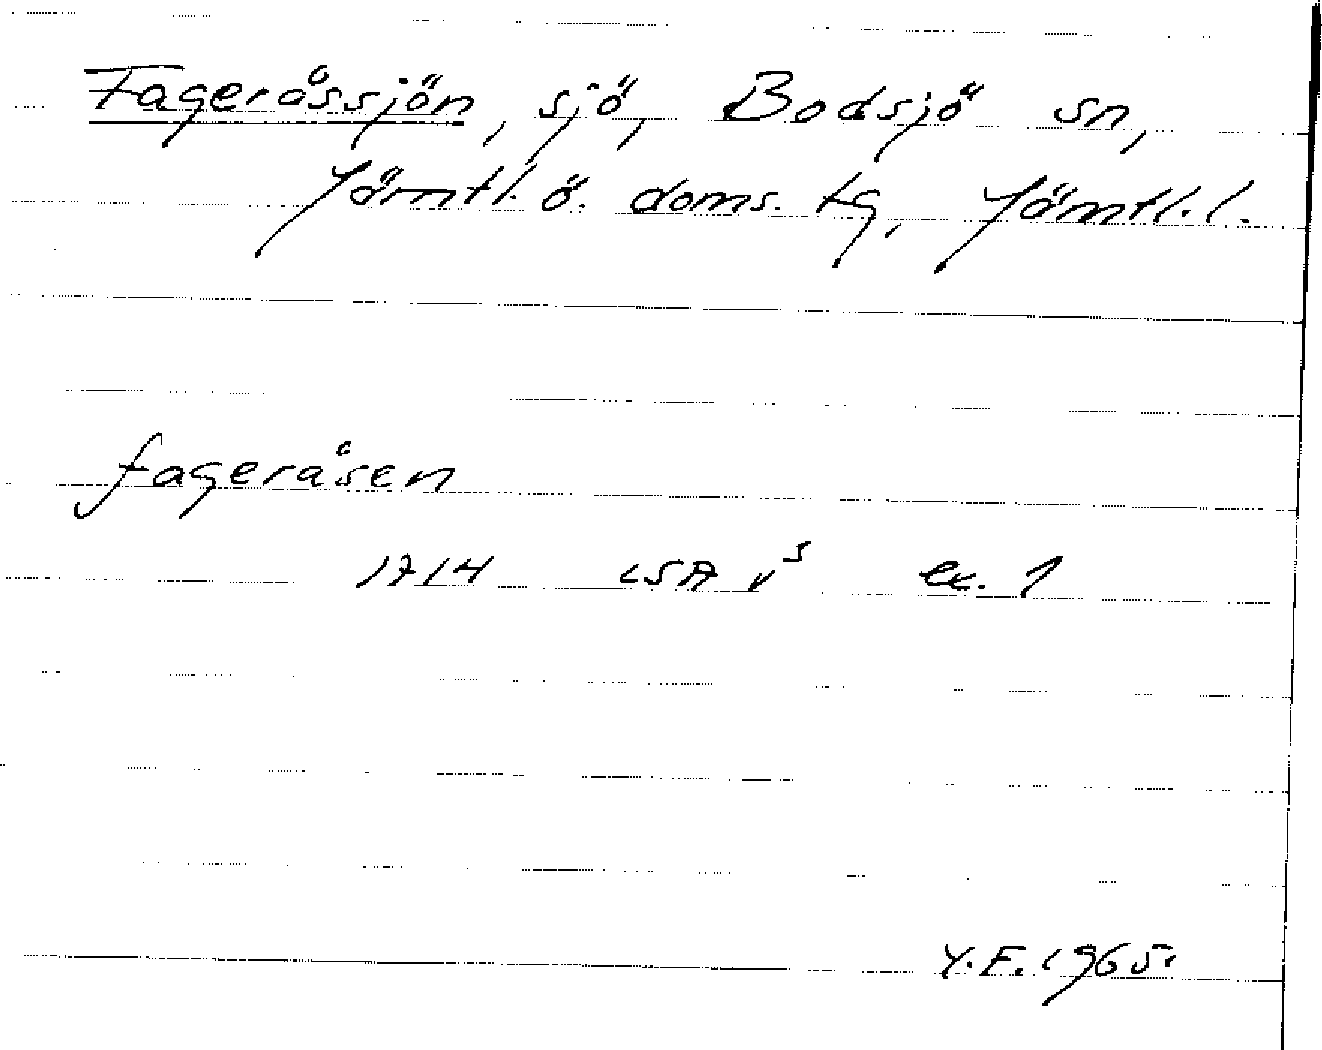 Fageråssjön, sjö, Bodsjö sn,
Jämtl. ö. doms. tg, Jämtl. l.
fageråsen
1714 LSA v⁵ ex. 1
Y.F. 1965.